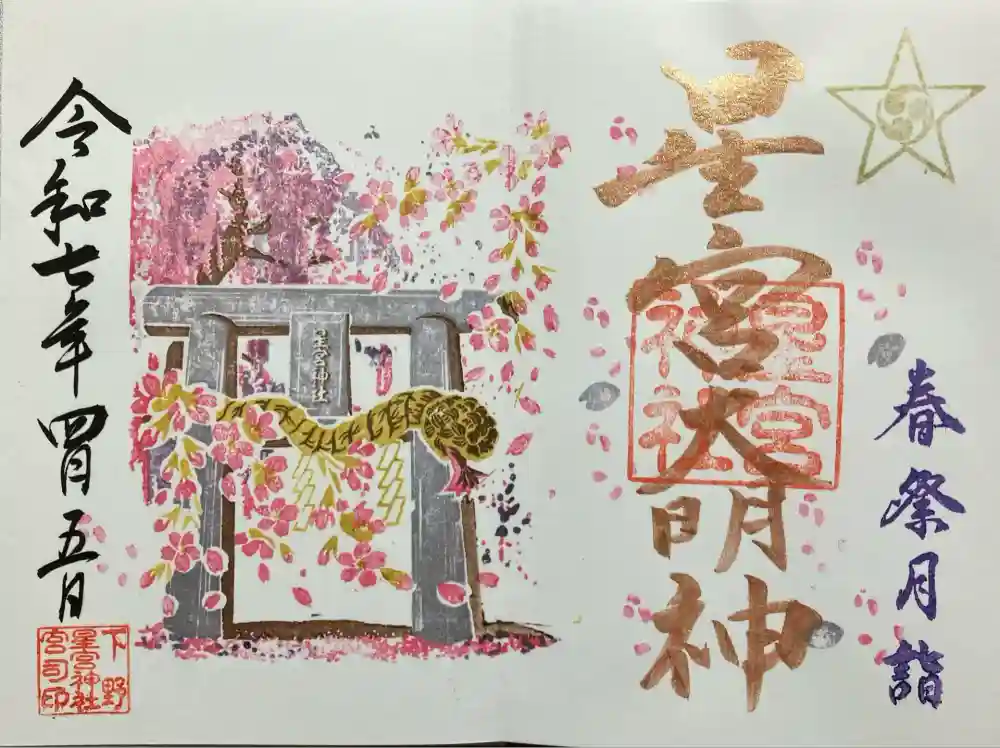 春祭月詣
星宮大明神
星宮神社
星宮神社
令和七年四月五日
下野
星宮神社
宮司印